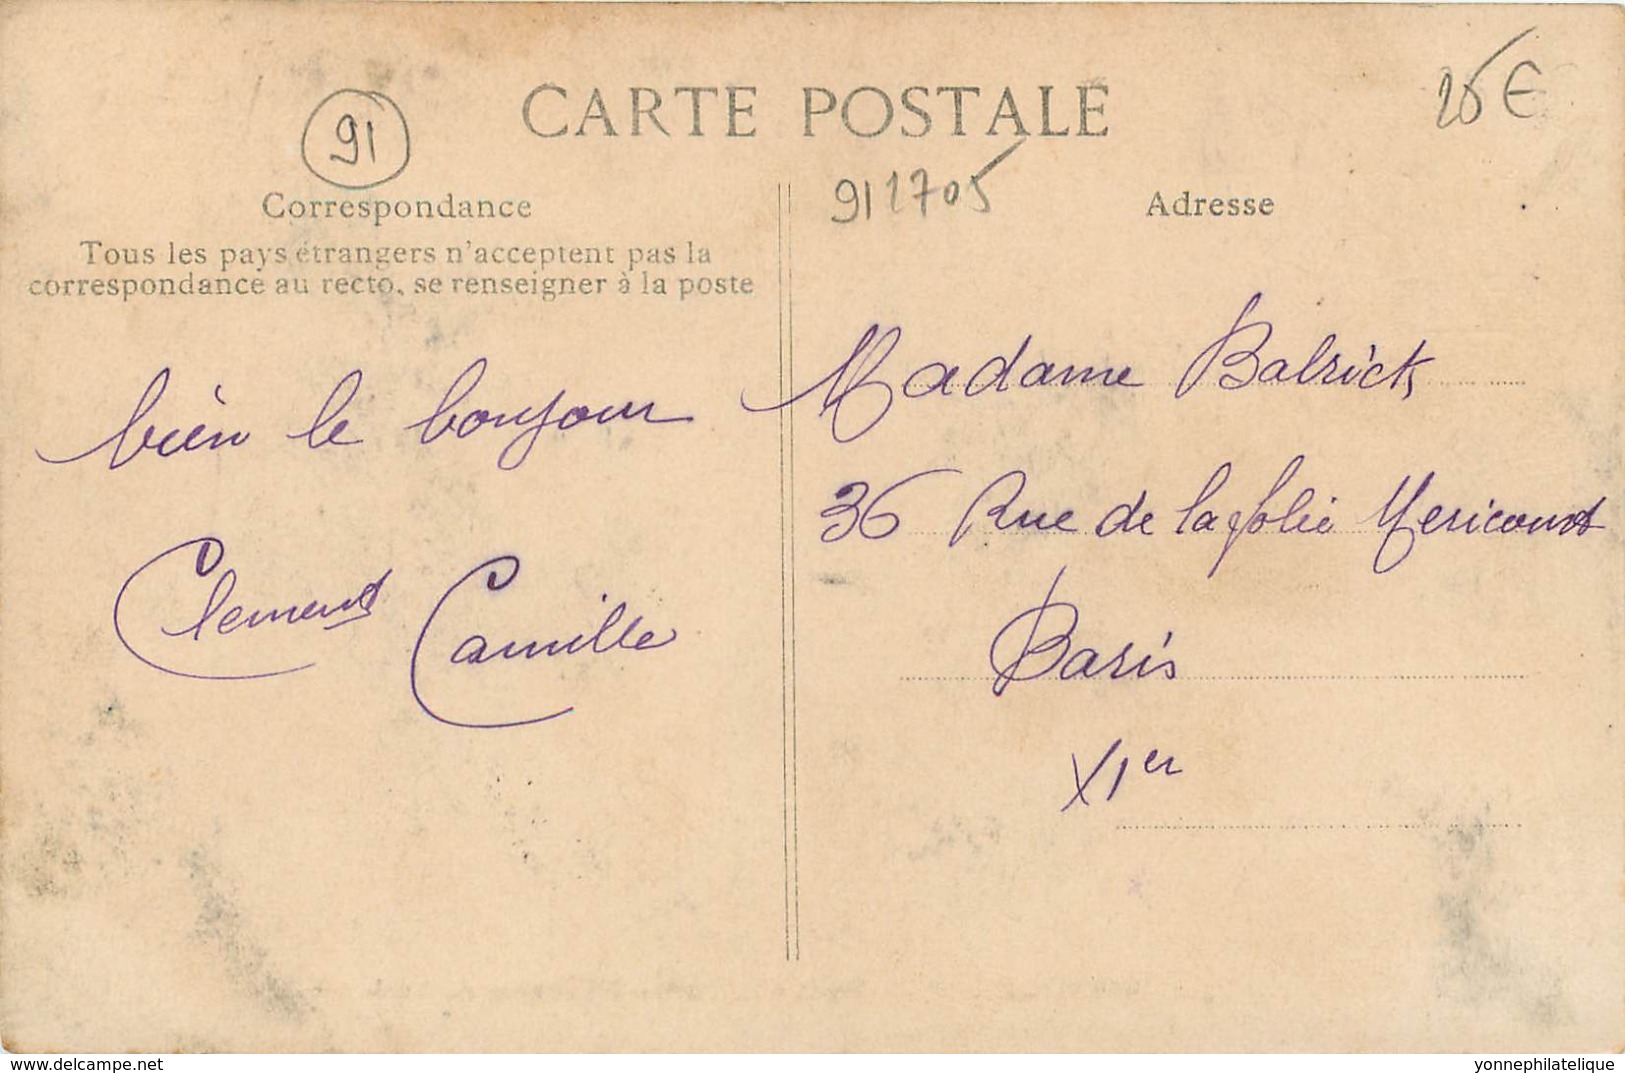 CARTE POSTALE
25€
91
912705
Correspondance
Tous les pays étrangers n'acceptent pas la
correspondance au recto, se renseigner à la poste
bien le bonjour
Clement Camille
Adresse
Madame Balrick
36 Rue de la folie Mericourt
Paris
XIer
delcampe.net
yonnephilatelique